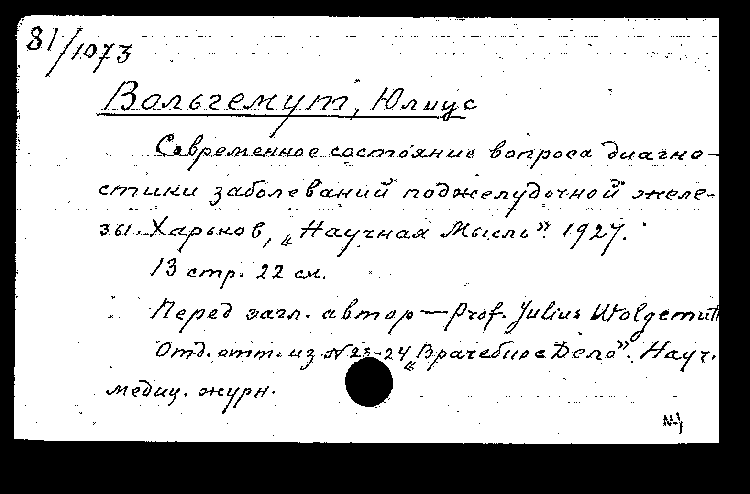 81/1073
Вольгемут, Юлиус
Современное состояние вопроса диагно-
стики заболеваний поджелудочной желе-
зы. Харьков, „Научная Мысль". 1927.
13 стр. 22 см.
Перед загл. автор — Prof. Julius Wolgemuth
Отд. отт. из № 23-24 „Врачебное Дело". Науч.
медиц. журн.